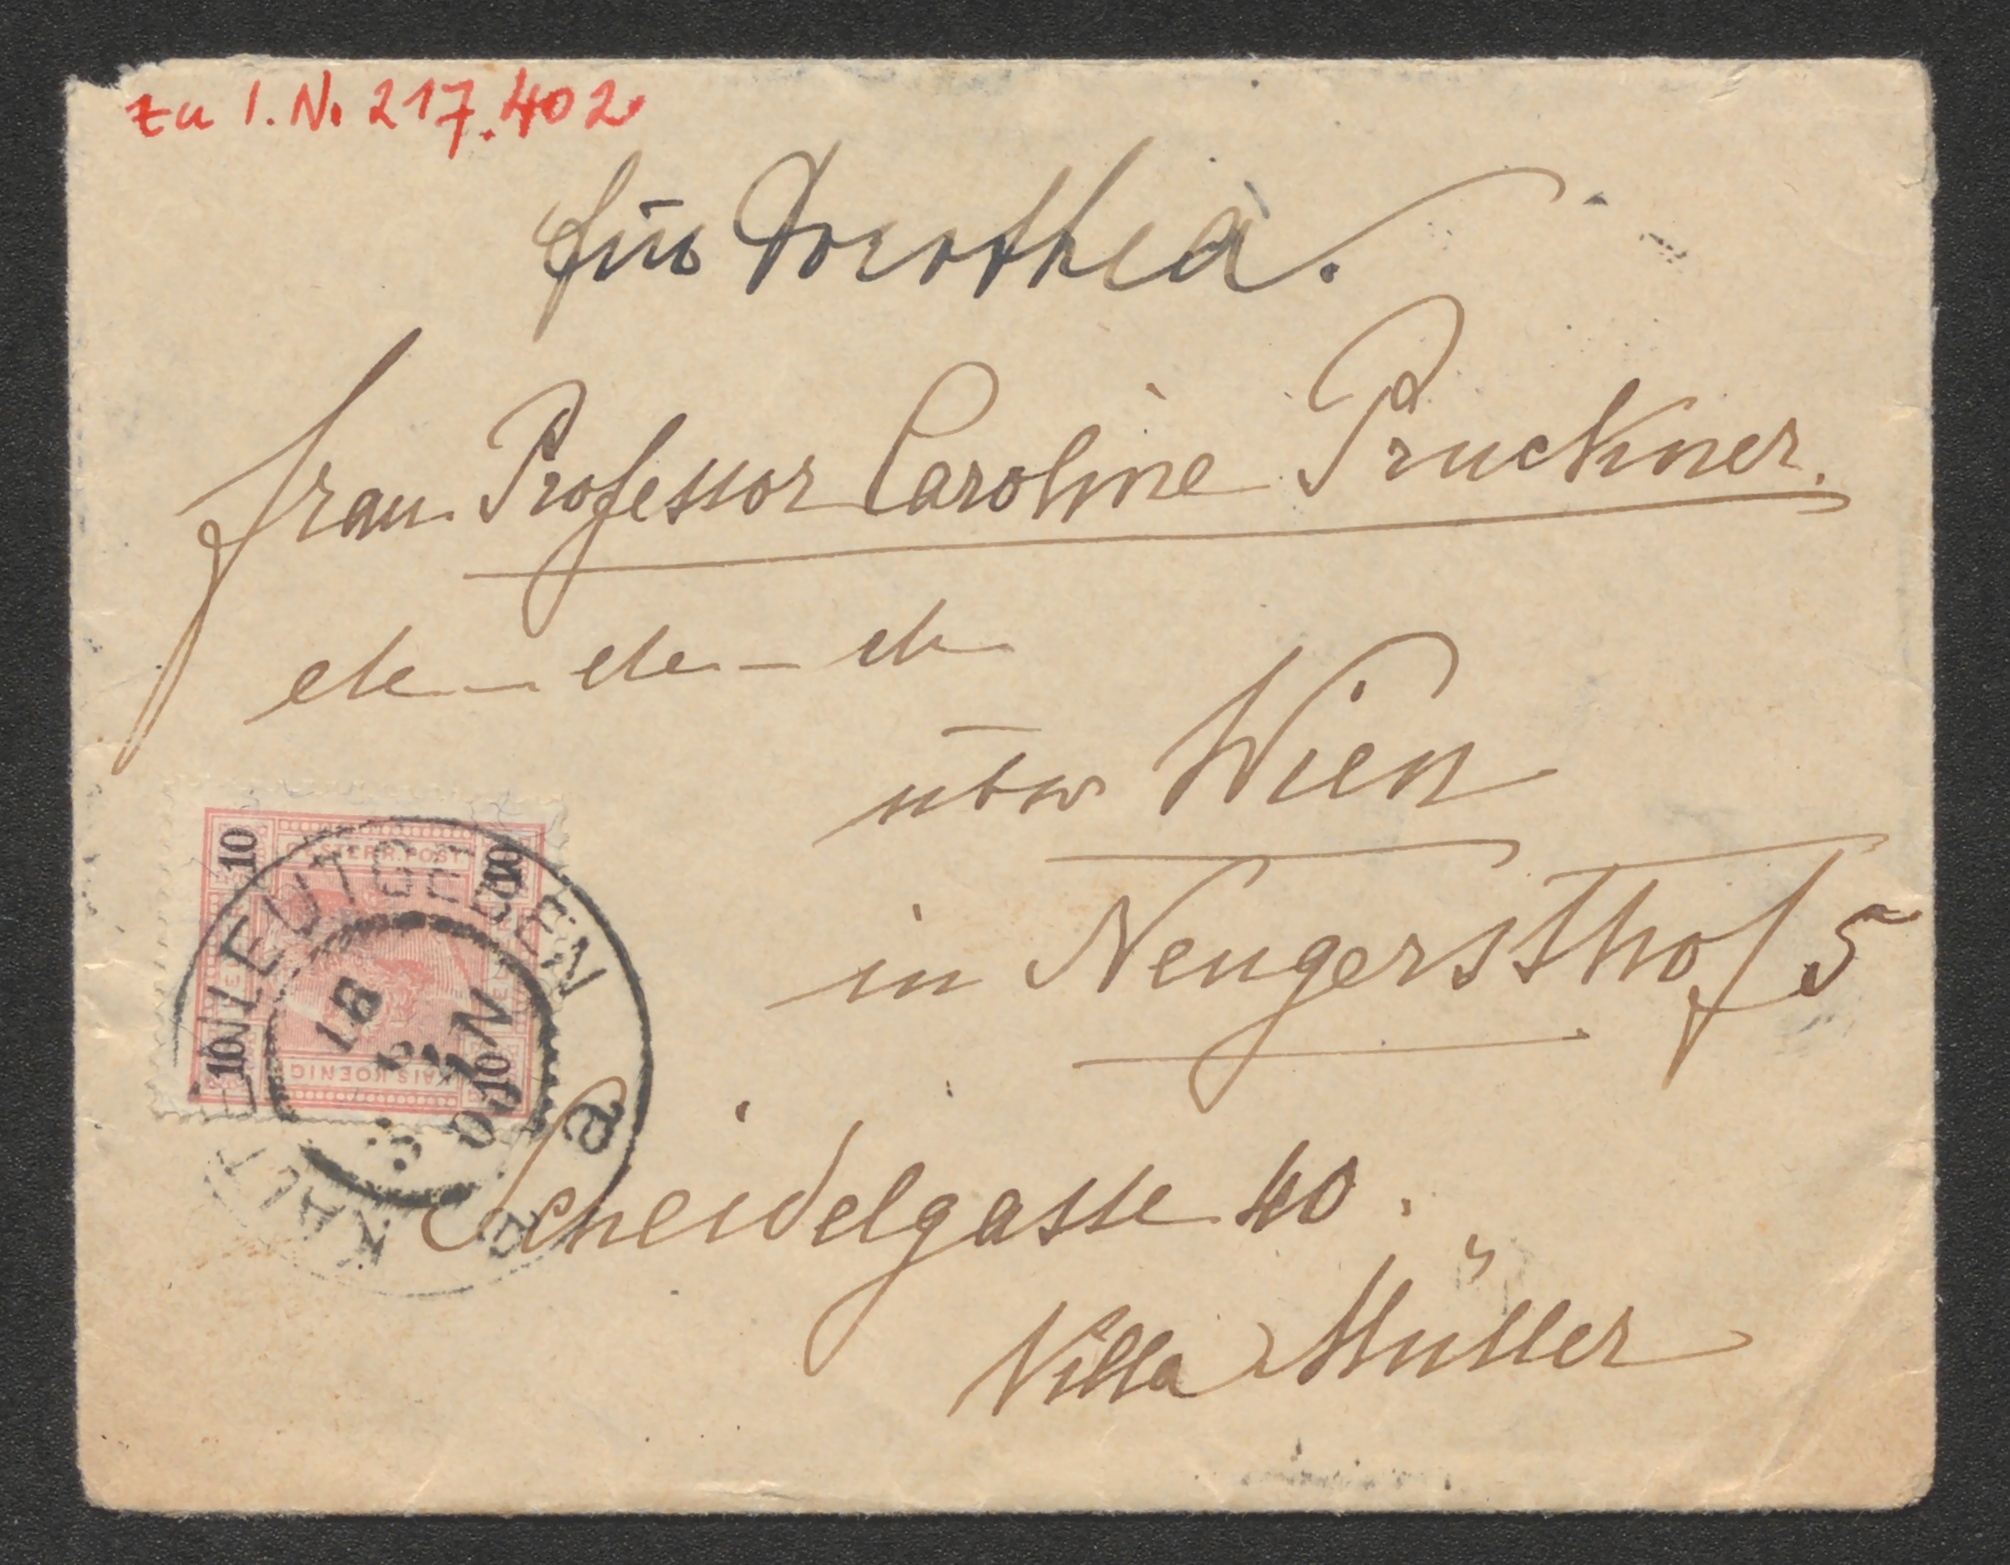 zu I.N. 217.402
für Dorothea.
Frau Professor Caroline Pruckner.
etc — etc — etc
über Wien
in Neugerssthof 5
Scheidelgasse 40.
Villa Müller
10 OESTERR. POST 10
10 KAIS. KOENIG. 10
KALTENLEUTGEBEN
18
00
a